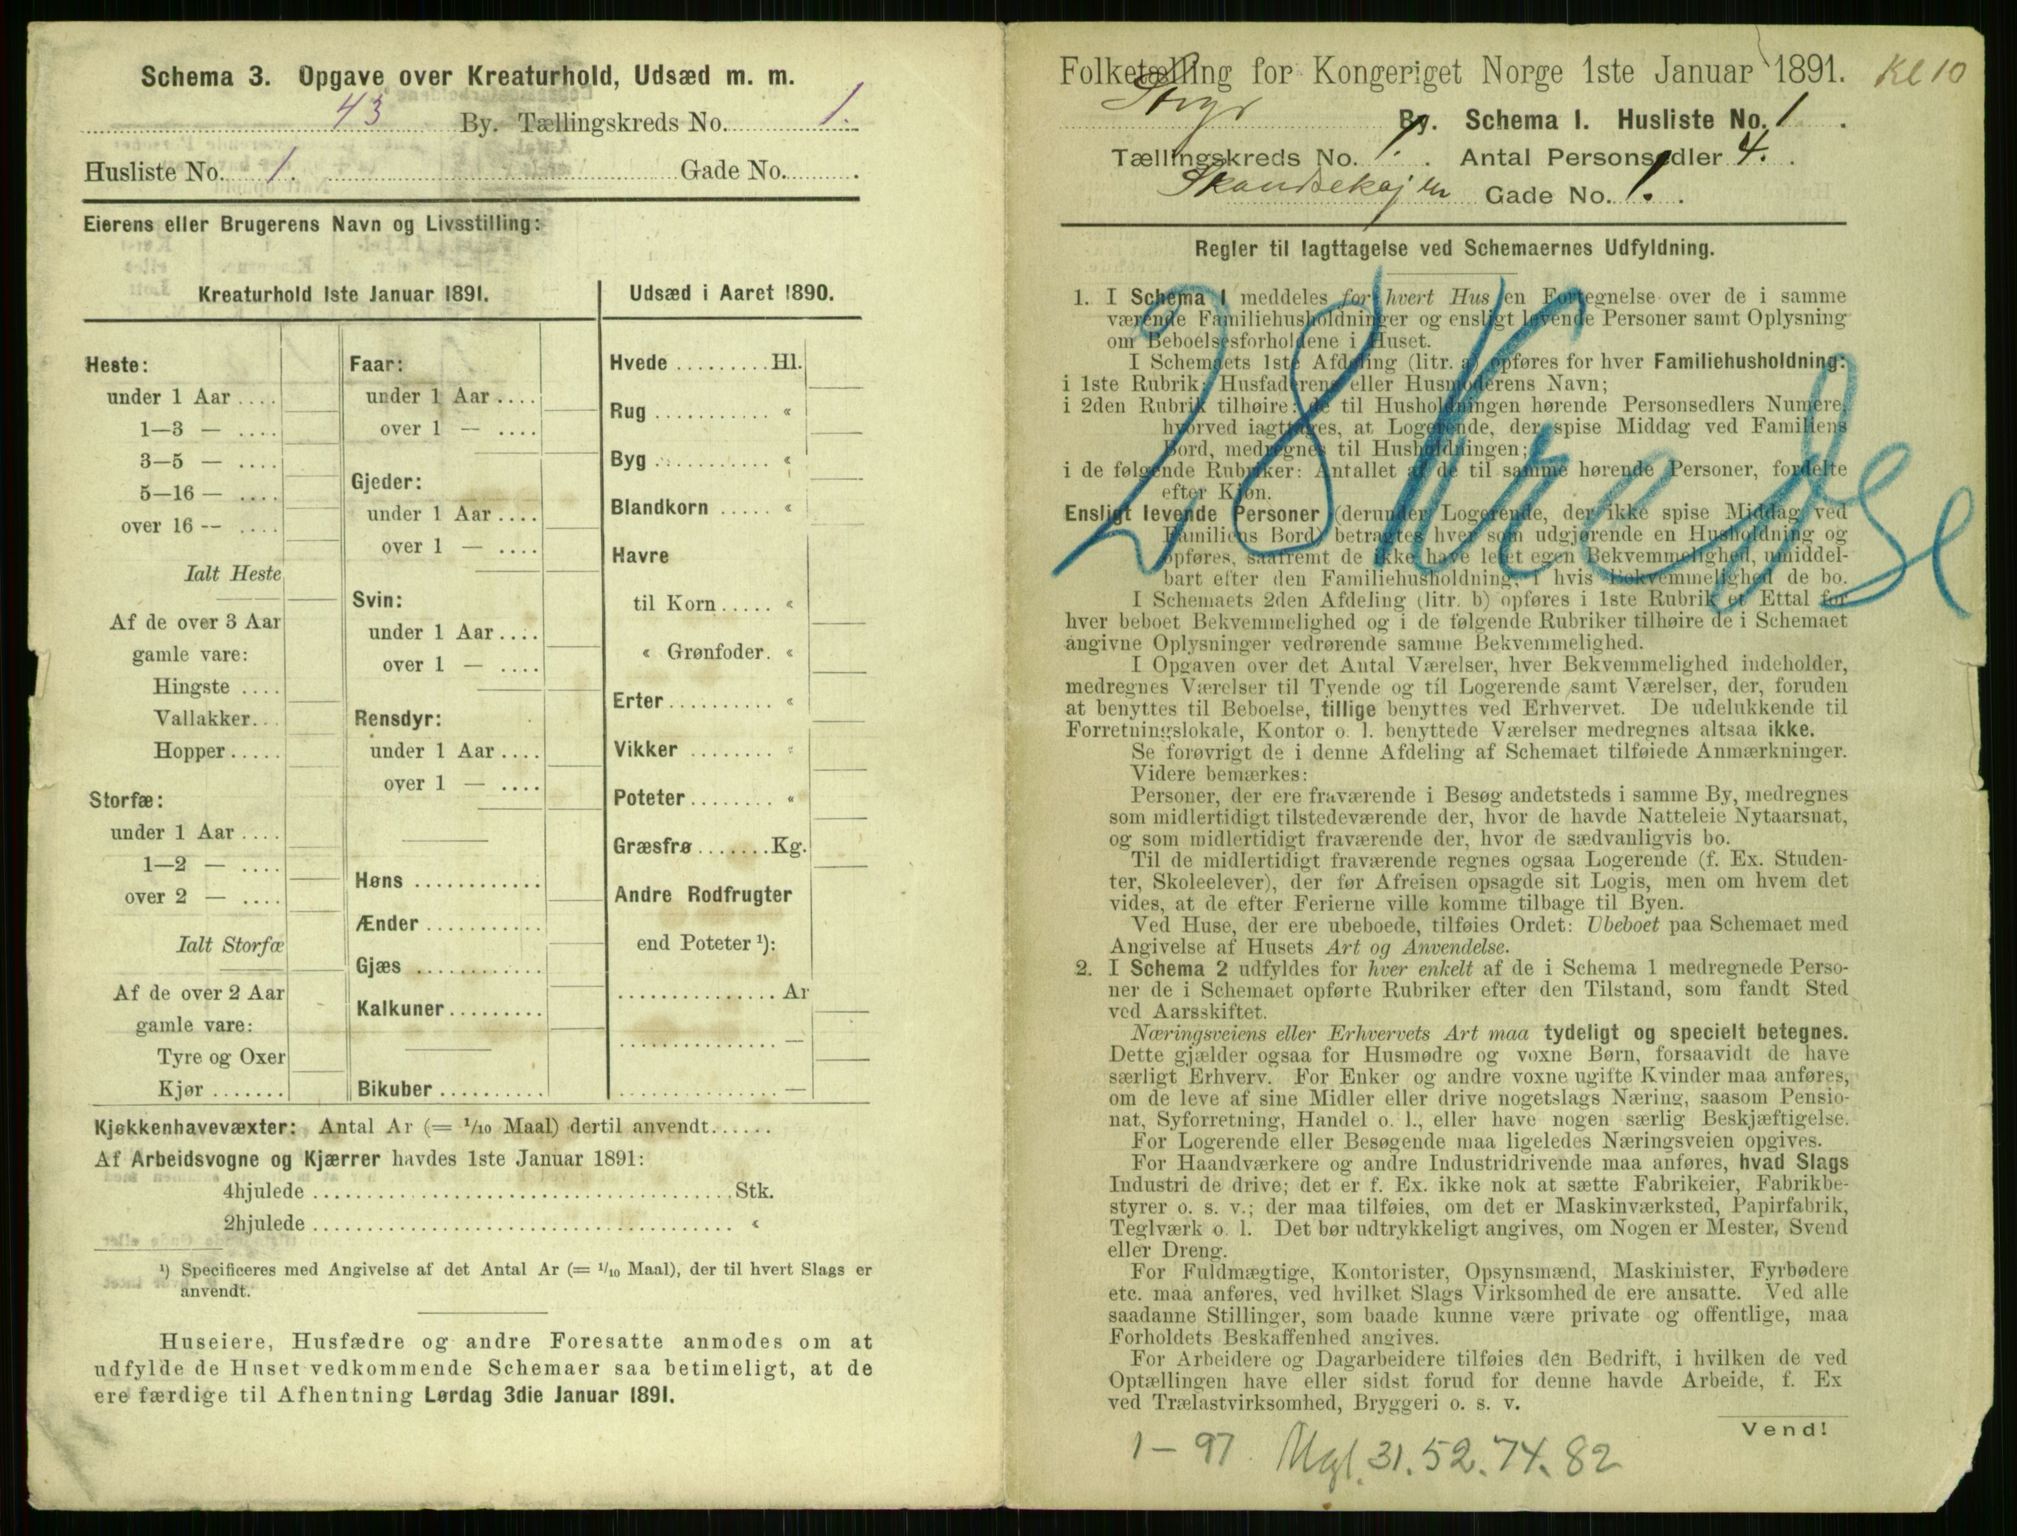 Schema 3. Opgave over Kreaturhold, Udsæd m. m.
43 By. Tællingskreds No. 1.
Husliste No. 1. Gade No.
Eierens eller Brugerens Navn og Livsstilling:
Kreaturhold 1ste Januar 1891.
Heste:
under 1 Aar ....
1—3 — ....
3—5 — ....
5—16 — ....
over 16 -- ....
Ialt Heste
Af de over 3 Aar
gamle vare:
Hingste ....
Vallakker...
Hopper .....
Storfæ:
under 1 Aar ....
1—2 — ....
over 2 — ....
Ialt Storfæ
Af de over 2 Aar
gamle vare:
Tyre og Oxer
Kjør .......
Faar:
under 1 Aar ....
over 1 — ....
Gjeder:
under 1 Aar ....
over 1 — ....
Svin:
under 1 Aar ....
over 1 — ....
Rensdyr:
under 1 Aar ....
over 1 — ....
Høns ............
Ænder ...........
Gjæs ............
Kalkuner .........
Bikuber ..........
Udsæd i Aaret 1890.
Hvede ......... Hl.
Rug ........... «
Byg ........... «
Blandkorn ..... «
Havre
til Korn ..... «
« Grønfoder. «
Erter .......... «
Vikker ........ «
Poteter ........ «
Græsfrø ....... Kg.
Andre Rodfrugter
end Poteter ¹):
............... Ar
............... —
............... —
Kjøkkenhavevæxter: Antal Ar (= 1/10 Maal) dertil anvendt......
Af Arbeidsvogne og Kjærrer havdes 1ste Januar 1891:
4hjulede ........................................ Stk.
2hjulede ........................................ «
¹) Specificeres med Angivelse af det Antal Ar (= 1/10 Maal), der til hvert Slags er
anvendt.
Huseiere, Husfædre og andre Foresatte anmodes om at
udfylde de Huset vedkommende Schemaer saa betimeligt, at de
ere færdige til Afhentning Lørdag 3die Januar 1891.
Folketælling for Kongeriget Norge 1ste Januar 1891. Kl 10
By. Schema I. Husliste No. 1.
Tællingskreds No. 1. Antal Personsedler 4.
Gade No. 1.
Regler til Iagttagelse ved Schemaernes Udfyldning.
28
1. I Schema 1 meddeles for hvert Hus en Fortegnelse over de i samme
værende Familiehusholdninger og ensligt levende Personer samt Oplysning
om Beboelsesforholdene i Huset.
I Schemaets 1ste Afdeling (litr. a) opføres for hver Familiehusholdning:
i 1ste Rubrik: Husfaderens eller Husmoderens Navn;
i 2den Rubrik tilhøire: de til Husholdningen hørende Personsedlers Numere,
hvorved iagttages, at Logerende, der spise Middag ved Familiens
Bord, medregnes til Husholdningen;
i de følgende Rubriker: Antallet af de til samme hørende Personer, fordelte
efter Kjøn.
Ensligt levende Personer (derunder Logerende, der ikke spise Middag ved
Familiens Bord) betragtes hver som udgjørende en Husholdning og
opføres, saafremt de ikke have leiet egen Bekvemmelighed, umiddel-
bart efter den Familiehusholdning, i hvis Bekvemmelighed de bo.
I Schemaets 2den Afdeling (litr. b) opføres i 1ste Rubrik et Ettal for
hver beboet Bekvemmelighed og i de følgende Rubriker tilhøire de i Schemaet
angivne Oplysninger vedrørende samme Bekvemmelighed.
I Opgaven over det Antal Værelser, hver Bekvemmelighed indeholder,
medregnes Værelser til Tyende og til Logerende samt Værelser, der, foruden
at benyttes til Beboelse, tillige benyttes ved Erhvervet. De udelukkende til
Forretningslokale, Kontor o. l. benyttede Værelser medregnes altsaa ikke.
Se forøvrigt de i denne Afdeling af Schemaet tilføiede Anmærkninger.
Videre bemærkes:
Personer, der ere fraværende i Besøg andetsteds i samme By, medregnes
som midlertidigt tilstedeværende der, hvor de havde Natteleie Nytaarsnat,
og som midlertidigt fraværende der, hvor de sædvanligvis bo.
Til de midlertidigt fraværende regnes ogsaa Logerende (f. Ex. Studen-
ter, Skoleelever), der før Afreisen opsagde sit Logis, men om hvem det
vides, at de efter Ferierne ville komme tilbage til Byen.
Ved Huse, der ere ubeboede, tilføies Ordet: Ubeboet paa Schemaet med
Angivelse af Husets Art og Anvendelse.
2. I Schema 2 udfyldes for hver enkelt af de i Schema 1 medregnede Perso-
ner de i Schemaet opførte Rubriker efter den Tilstand, som fandt Sted
ved Aarsskiftet.
Næringsveiens eller Erhvervets Art maa tydeligt og specielt betegnes.
Dette gjælder ogsaa for Husmødre og voxne Børn, forsaavidt de have
særligt Erhverv. For Enker og andre voxne ugifte Kvinder maa anføres,
om de leve af sine Midler eller drive nogetslags Næring, saasom Pensio-
nat, Syforretning, Handel o. l., eller have nogen særlig Beskjæftigelse.
For Logerende eller Besøgende maa ligeledes Næringsveien opgives.
For Haandværkere og andre Industridrivende maa anføres, hvad Slags
Industri de drive; det er f. Ex. ikke nok at sætte Fabrikeier, Fabrikbe-
styrer o. s. v.; der maa tilføies, om det er Maskinværksted, Papirfabrik,
Teglværk o. l. Det bør udtrykkeligt angives, om Nogen er Mester, Svend
eller Dreng.
For Fuldmægtige, Kontorister, Opsynsmænd, Maskinister, Fyrbødere
etc. maa anføres, ved hvilket Slags Virksomhed de ere ansatte. Ved alle
saadanne Stillinger, som baade kunne være private og offentlige, maa
Forholdets Beskaffenhed angives.
For Arbeidere og Dagarbeidere tilføies den Bedrift, i hvilken de ved
Optællingen have eller sidst forud for denne havde Arbeide, f. Ex
ved Trælastvirksomhed, Bryggeri o. s. v.
Vend!
1 — 97 Mgl. 31. 52. 74. 82